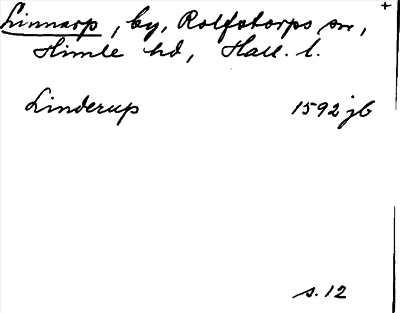 +
Linnarp, by, Rolfstorps sn,
Himle hd, Hall. l.
Linderup 1592 jb
s. 12